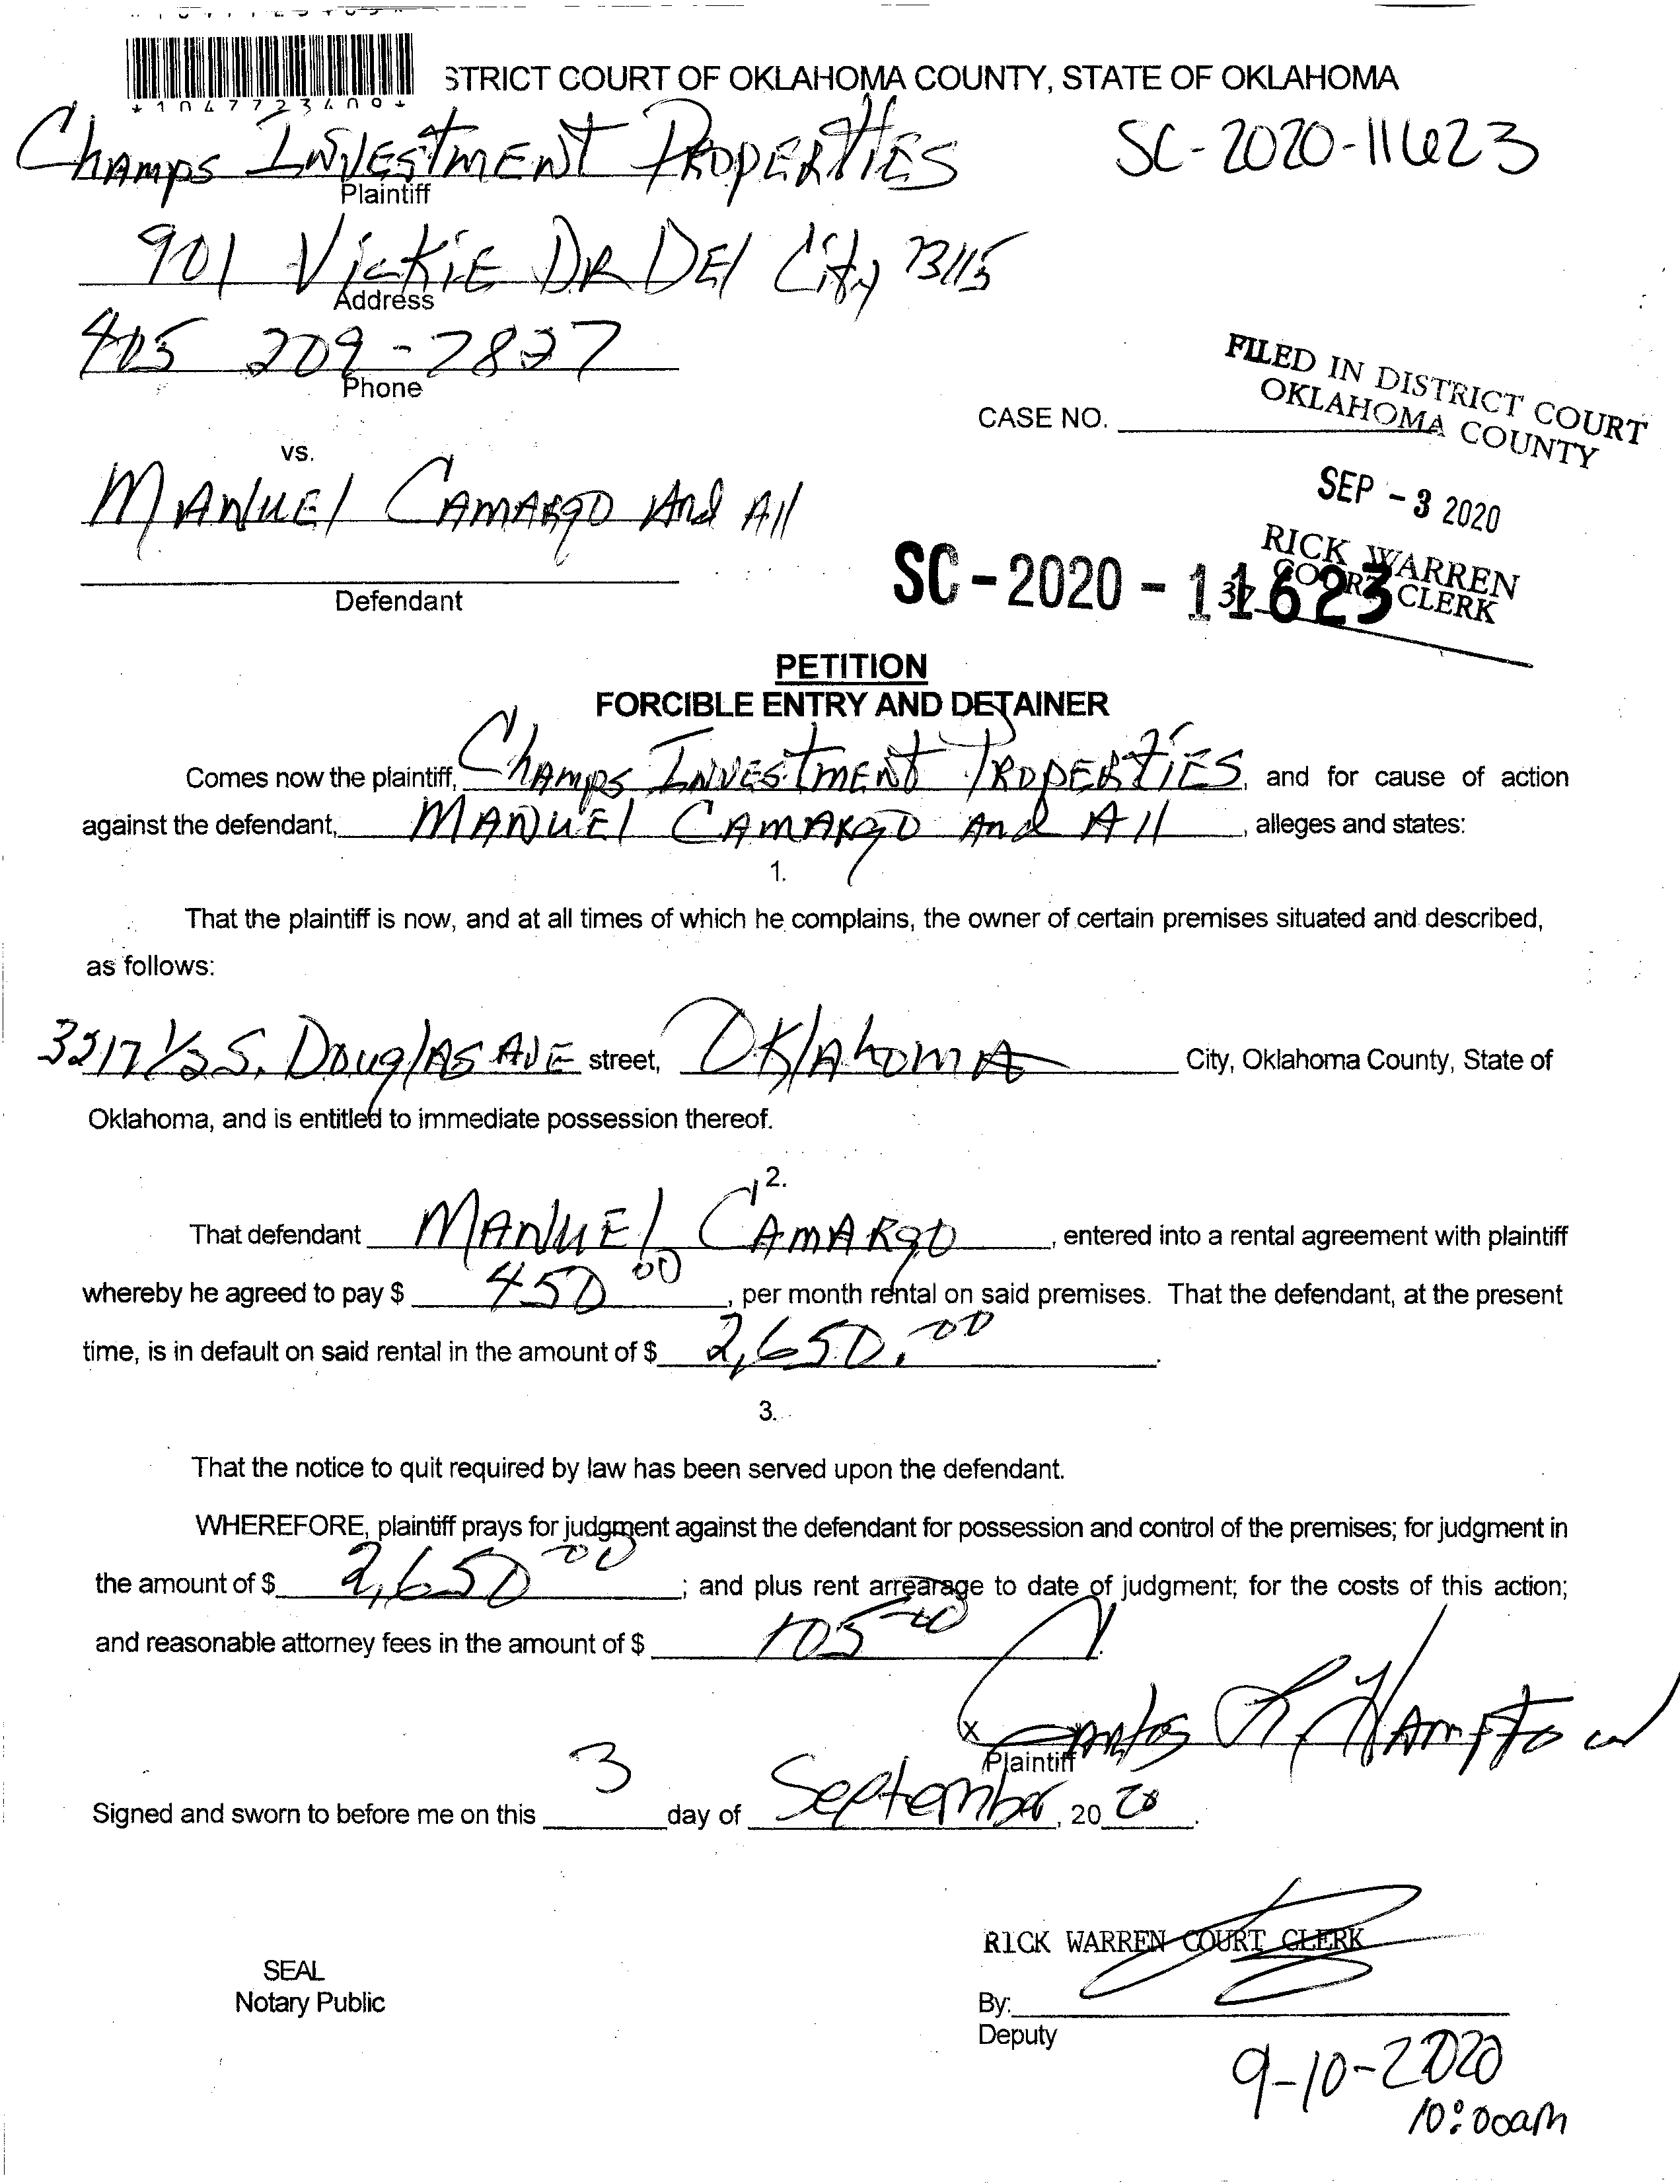 *1047723409*
STRICT COURT OF OKLAHOMA COUNTY, STATE OF OKLAHOMA
Champs Investment Properties
SC-2020-11623
Plaintiff
901 Vickie Dr Del City 73115
Address
405 209-7827
Phone
FILED IN DISTRICT COURT
OKLAHOMA COUNTY
CASE NO.
vs.
SEP - 3 2020
Manuel Camargo And All
RICK WARREN
COURT CLERK
SC - 2020 - 11623
37
Defendant
PETITION
FORCIBLE ENTRY AND DETAINER
Comes now the plaintiff, Champs Investment Properties, and for cause of action
against the defendant, Manuel Camargo And All, alleges and states:
1.
That the plaintiff is now, and at all times of which he complains, the owner of certain premises situated and described,
as follows:
3217 1/2 S. Douglas Ave street, Oklahoma City, Oklahoma County, State of
Oklahoma, and is entitled to immediate possession thereof.
2.
That defendant Manuel Camargo, entered into a rental agreement with plaintiff
whereby he agreed to pay $ 450 00, per month rental on said premises. That the defendant, at the present
time, is in default on said rental in the amount of $ 2,650.00.
3.
That the notice to quit required by law has been served upon the defendant.
WHEREFORE, plaintiff prays for judgment against the defendant for possession and control of the premises; for judgment in
the amount of $ 2,650 00; and plus rent arrearage to date of judgment; for the costs of this action;
and reasonable attorney fees in the amount of $ 105 00.
x Hampton
Plaintiff
Signed and sworn to before me on this 3 day of September, 20 20.
RICK WARREN COURT CLERK
SEAL
Notary Public
By:
Deputy
9-10-2020
10:00am